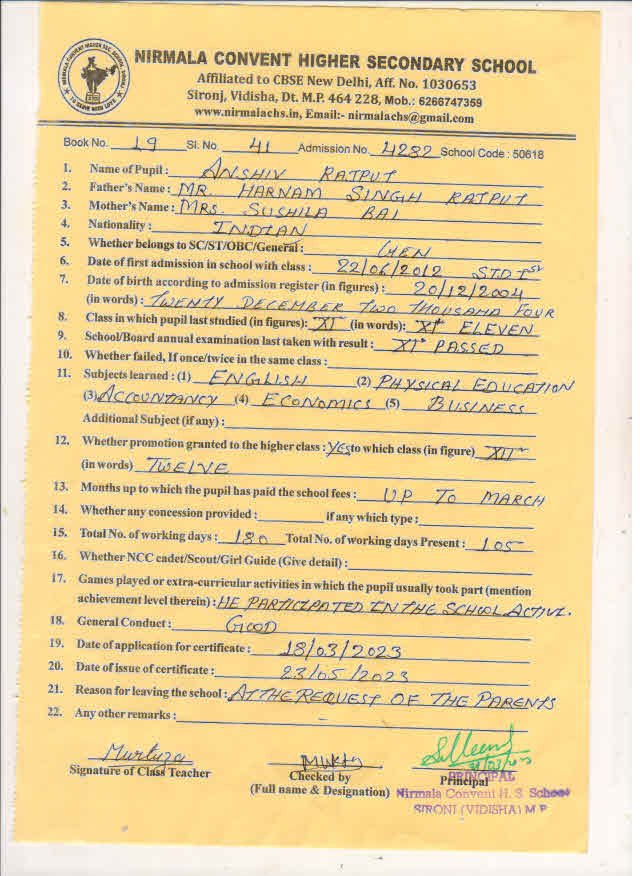 NIRMALA CONVENT HIGHER SECONDARY SCHOOL
Affiliated to CBSE New Delhi, Aff. No. 1030653
Sironj, Vidisha, Dt. M.P. 464 228, Mob.: 6266747359
www.nirmalachs.in, Email:- nirmalachs@gmail.com
Book No. 19 Sl. No. 41 Admission No. 4282 School Code : 50618
1. Name of Pupil : ANSHIV RAJPUT
2. Father's Name : MR. HARNAM SINGH RAJPUT
3. Mother's Name : MRS. SUSHILA BAI
4. Nationality : INDIAN
5. Whether belongs to SC/ST/OBC/General : GEN
6. Date of first admission in school with class : 22/06/2012 STD Ist
7. Date of birth according to admission register (in figures) : 20/12/2004
(in words) : TWENTY DECEMBER TWO THOUSAND FOUR
8. Class in which pupil last studied (in figures): XIth (in words): XIth ELEVEN
9. School/Board annual examination last taken with result : XIth PASSED
10. Whether failed, If once/twice in the same class :
11. Subjects learned : (1) ENGLISH (2) PHYSICAL EDUCATION
(3) ACCOUNTANCY (4) ECONOMICS (5) BUSINESS
Additional Subject (if any) :
12. Whether promotion granted to the higher class : Yes to which class (in figure) XIIth
(in words) TWELVE
13. Months up to which the pupil has paid the school fees : UP TO MARCH
14. Whether any concession provided : if any which type :
15. Total No. of working days : 180 Total No. of working days Present : 105
16. Whether NCC cadet/Scout/Girl Guide (Give detail) :
17. Games played or extra-curricular activities in which the pupil usually took part (mention
achievement level therein) : HE PARTICIPATED IN THE SCHOOL ACTIVI.
18. General Conduct : GOOD
19. Date of application for certificate : 18/03/2023
20. Date of issue of certificate : 23/05/2023
21. Reason for leaving the school : AT THE REQUEST OF THE PARENTS
22. Any other remarks : –
Murtuza
Signature of Class Teacher Checked by Principal
(Full name & Designation)
PRINCIPAL
Nirmala Convent H. S. School
SIRONJ (VIDISHA) M P